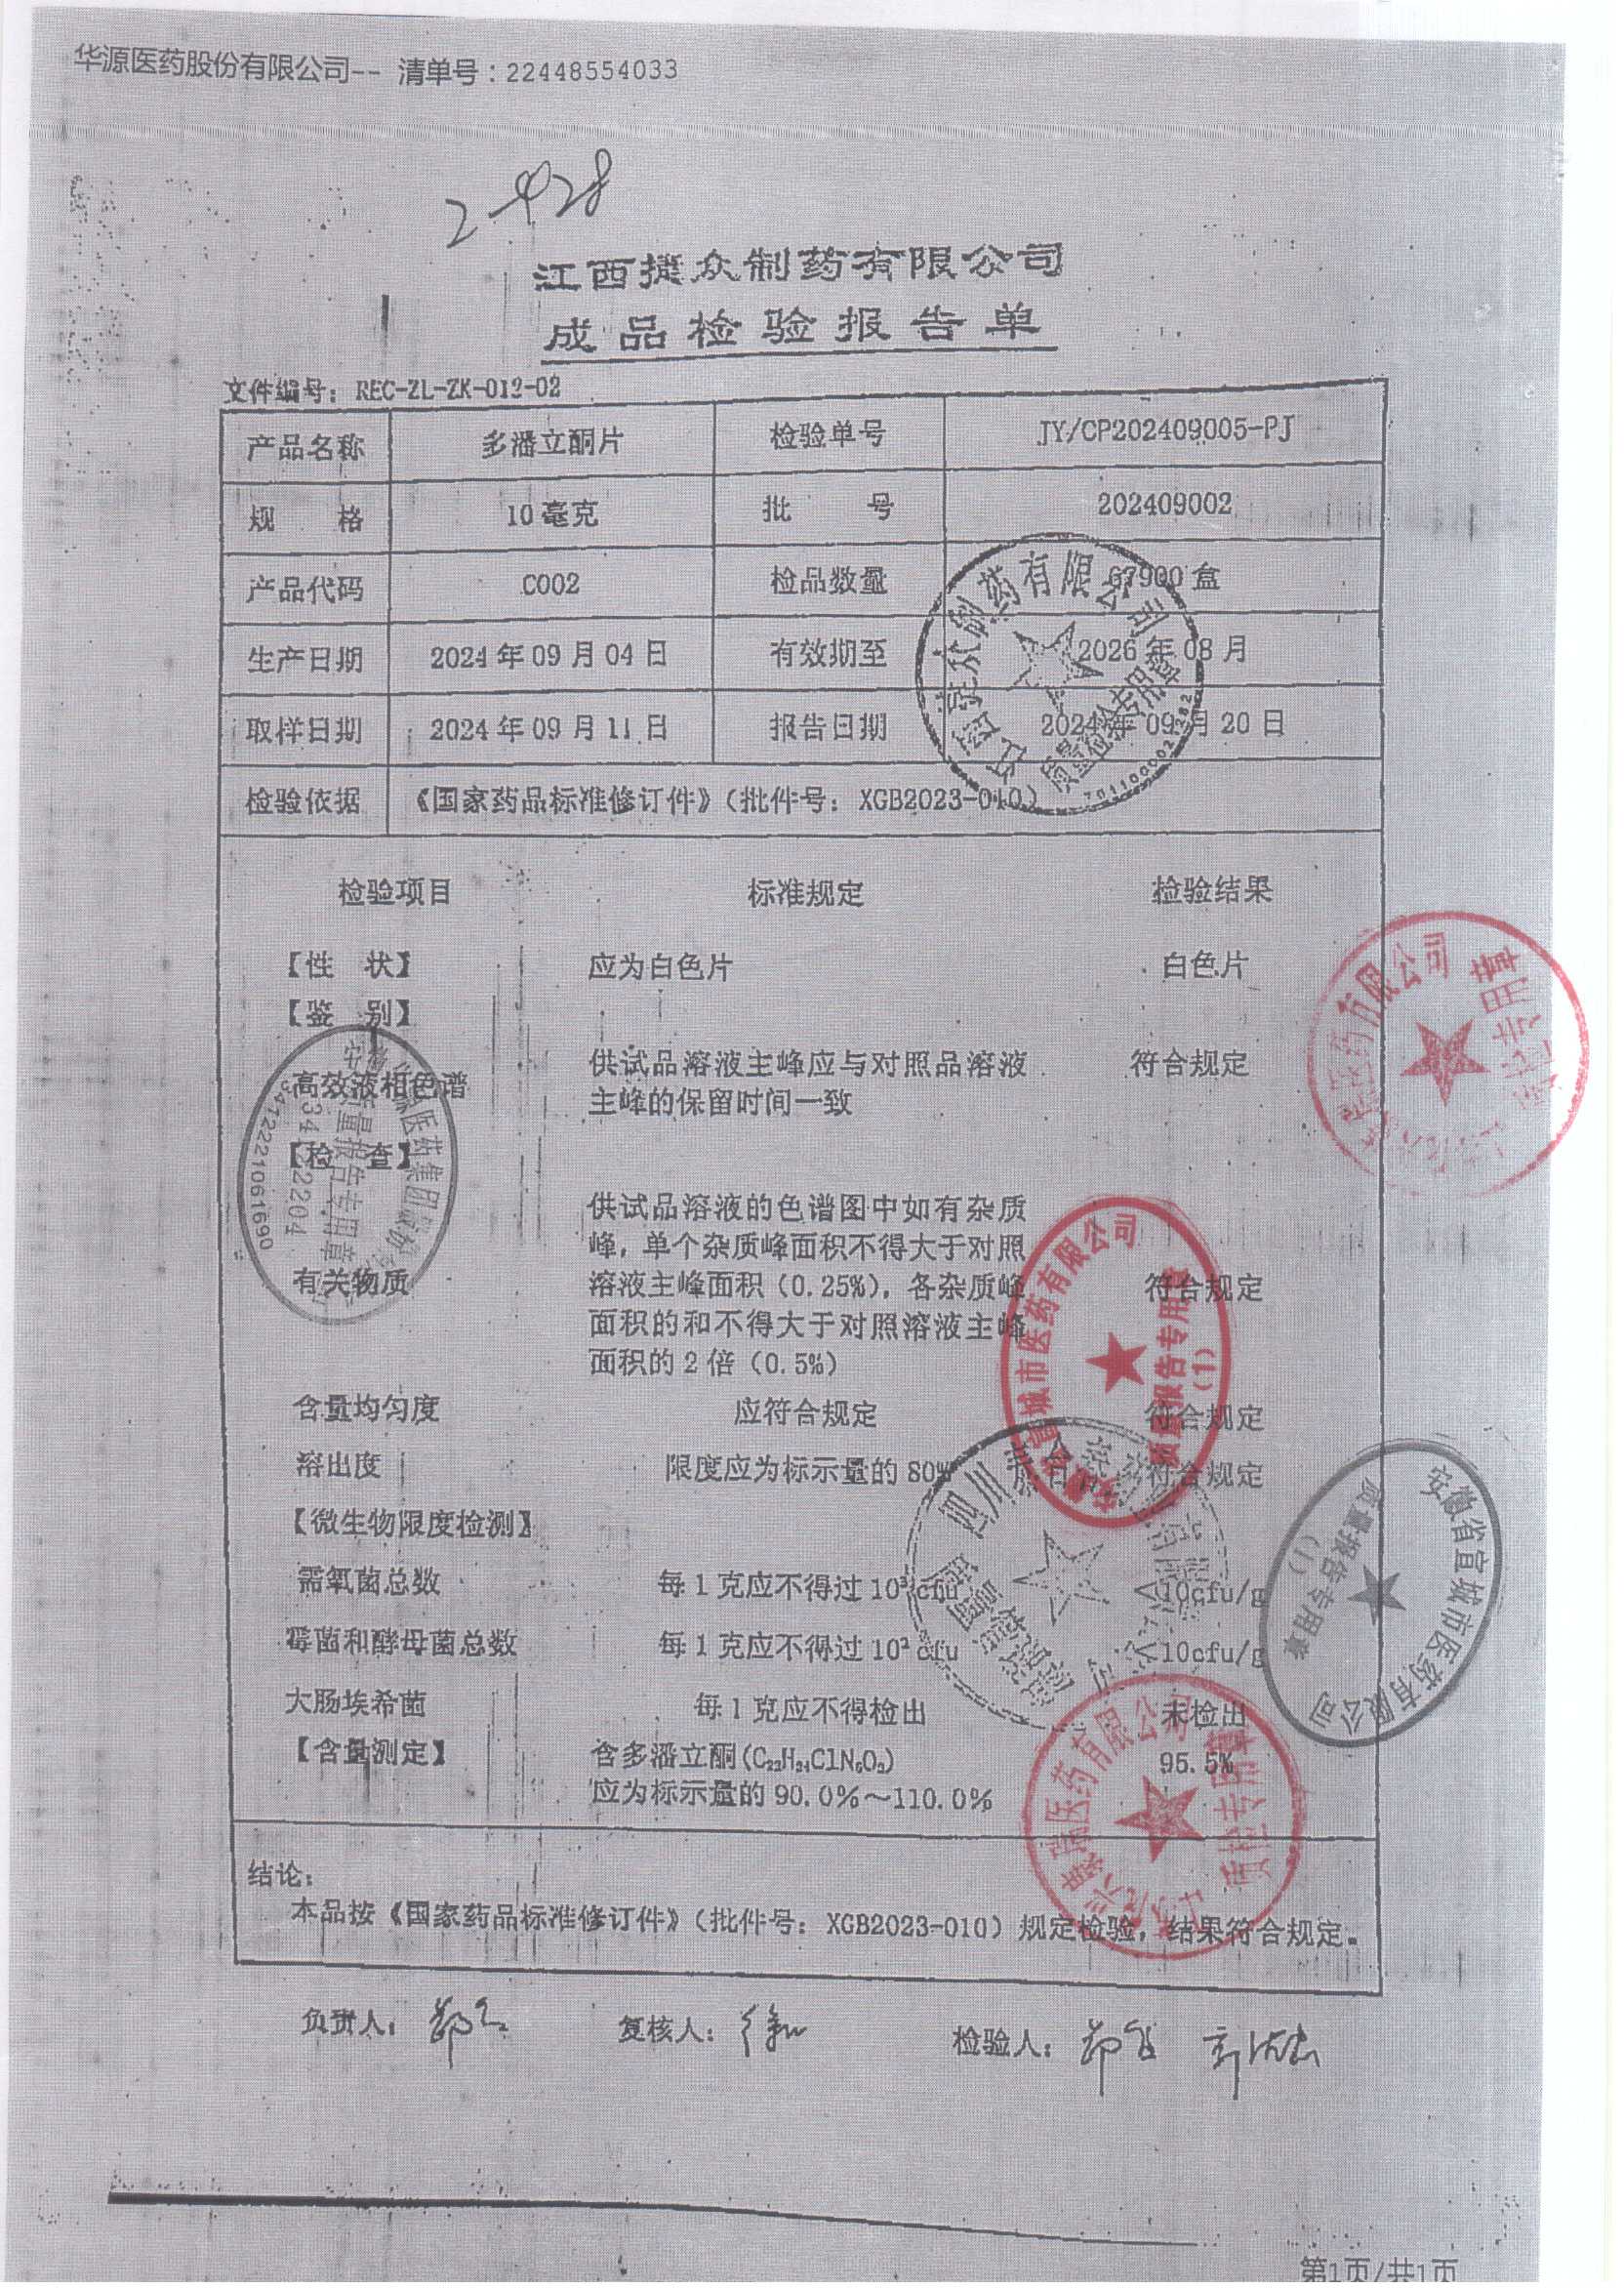 华源医药股份有限公司-- 清单号:22448554033
2-428
江西捷众制药有限公司
成品检验报告单
文件编号: REC-ZL-ZK-012-02
产品名称 多潘立酮片 检验单号 JY/CP202409005-PJ
规 格 10毫克 批 号 202409002
产品代码 C002 检品数量 67900盒
生产日期 2024年09月04日 有效期至 2026年08月
取样日期 2024年09月11日 报告日期 2024年09月20日
检验依据 《国家药品标准修订件》(批件号: XGB2023-010)
检验项目 标准规定 检验结果
【性 状】 应为白色片 白色片
【鉴 别】
高效液相色谱 供试品溶液主峰应与对照品溶液 符合规定
主峰的保留时间一致
【检 查】
供试品溶液的色谱图中如有杂质
峰,单个杂质峰面积不得大于对照
有关物质 溶液主峰面积(0.25%),各杂质峰 符合规定
面积的和不得大于对照溶液主峰
面积的2倍(0.5%)
含量均匀度 应符合规定 符合规定
溶出度 限度应为标示量的80% 符合规定
【微生物限度检测】
需氧菌总数 每1克应不得过10³cfu <10cfu/g
霉菌和酵母菌总数 每1克应不得过10²cfu <10cfu/g
大肠埃希菌 每1克应不得检出 未检出
【含量测定】 含多潘立酮(C₂₂H₂₄ClN₅O₂) 95.5%
应为标示量的90.0%~110.0%
结论:
本品按《国家药品标准修订件》(批件号: XGB2023-010)规定检验,结果符合规定。
负责人: 复核人: 检验人:
江西捷众制药有限公司
质量检验专用章
医药有限公司
安徽省宣城市医药有限公司
质量报告专用章
(1)
安徽省宣城市医药有限公司
质量报告专用章
(1)
质量报告专用章
3412221061690
医药有限公司
质控专用章
第1页/共1页